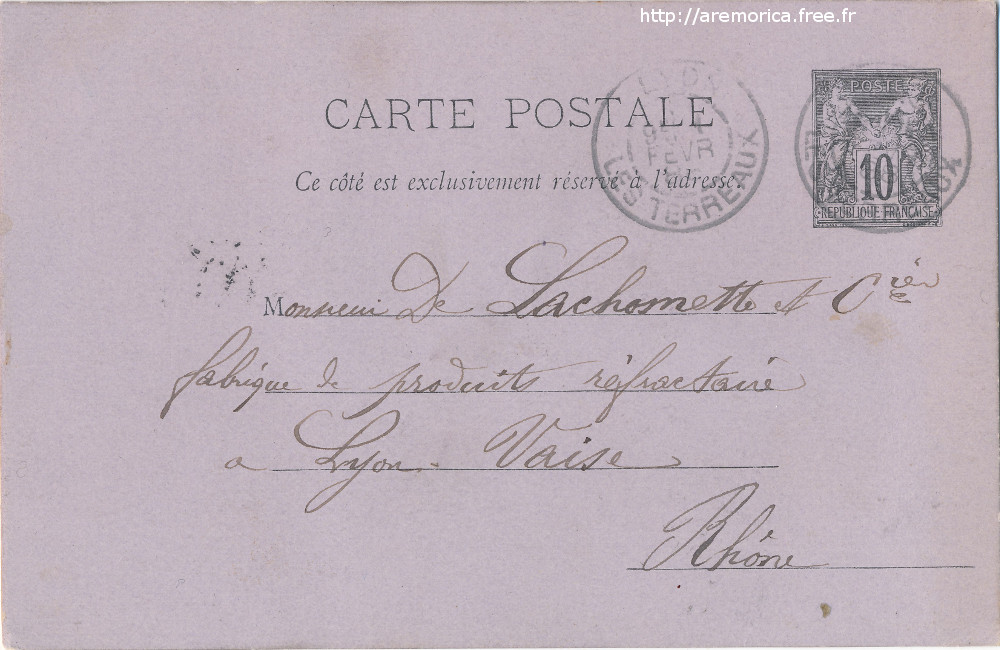 http://aremorica.free.fr
CARTE POSTALE
POSTES
10
REPUBLIQUE FRANÇAISE
FEVR
LES TERREAUX
Ce côté est exclusivement réservé à l'adresse.
Monsieur De Lachomette et Cie
fabrique de produits réfractaire
a Lyon-Vaise
Rhône